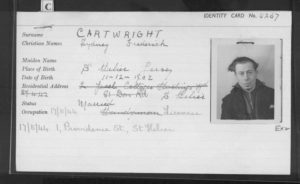 C
IDENTITY CARD No. 4267
Surname CARTWRIGHT
Christian Names Sydney Frederick
Maiden Name
Place of Birth St Helier Jersey
Date of Birth 11-12-1902
Residential Address 2 Cottages Hastings Rd
St Helier
Status Married
Occupation 17/11/44 Handyman
17/11/44 1, Providence St, St Helier